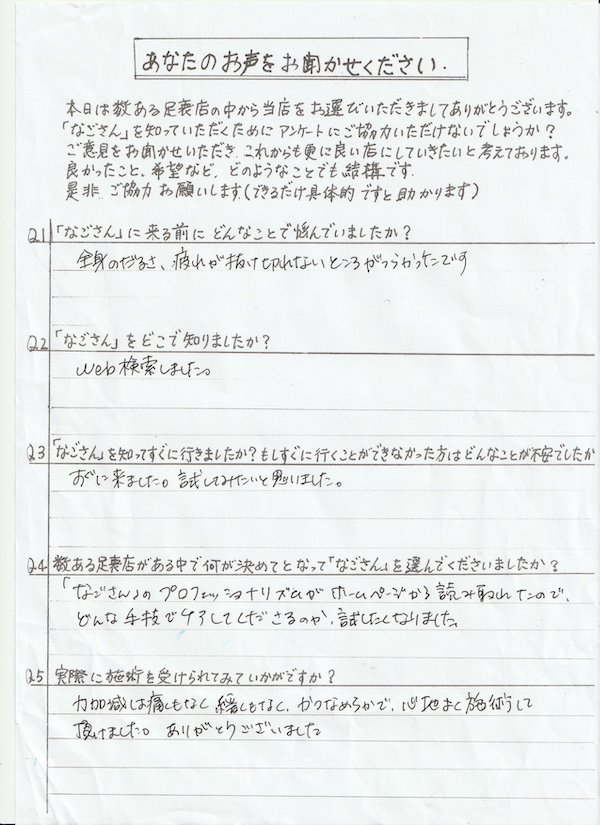 あなたのお声をお聞かせください.
本日は数ある足裏店の中から当店をお選びいただきましてありがとうございます。
「なごさん」を知っていただくためにアンケートにご協力いただけないでしょうか？
ご意見をお聞かせいただき、これからも更に良い店にしていきたいと考えております。
良かったこと、希望など、どのようなことでも結構です。
是非、ご協力お願いします(できるだけ具体的ですと助かります)
Q1 「なごさん」に来る前にどんなことで悩んでいましたか？
全身のだるさ、疲れが抜け切れないところがつらかったです
Q2 「なごさん」をどこで知りましたか？
web検索しました。
Q3 「なごさん」を知ってすぐに行きましたか？もしすぐに行くことができなかった方はどんなことが不安でしたか
すぐに来ました。試してみたいと思いました。
Q4 数ある足裏店がある中で何が決めてとなって「なごさん」を選んでくださいましたか？
「なごさん」のプロフェッショナリズムがホームページから読み取れたので、
どんな手技でケアしてくださるのか、試したくなりました。
Q5 実際に施術を受けられてみていかがですか？
力加減は痛くもなく緩くもなく、かつなめらかで、心地よく施術して
頂けました。ありがとうございました